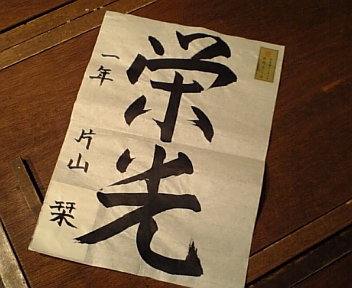 栄光
一年 片山 栞